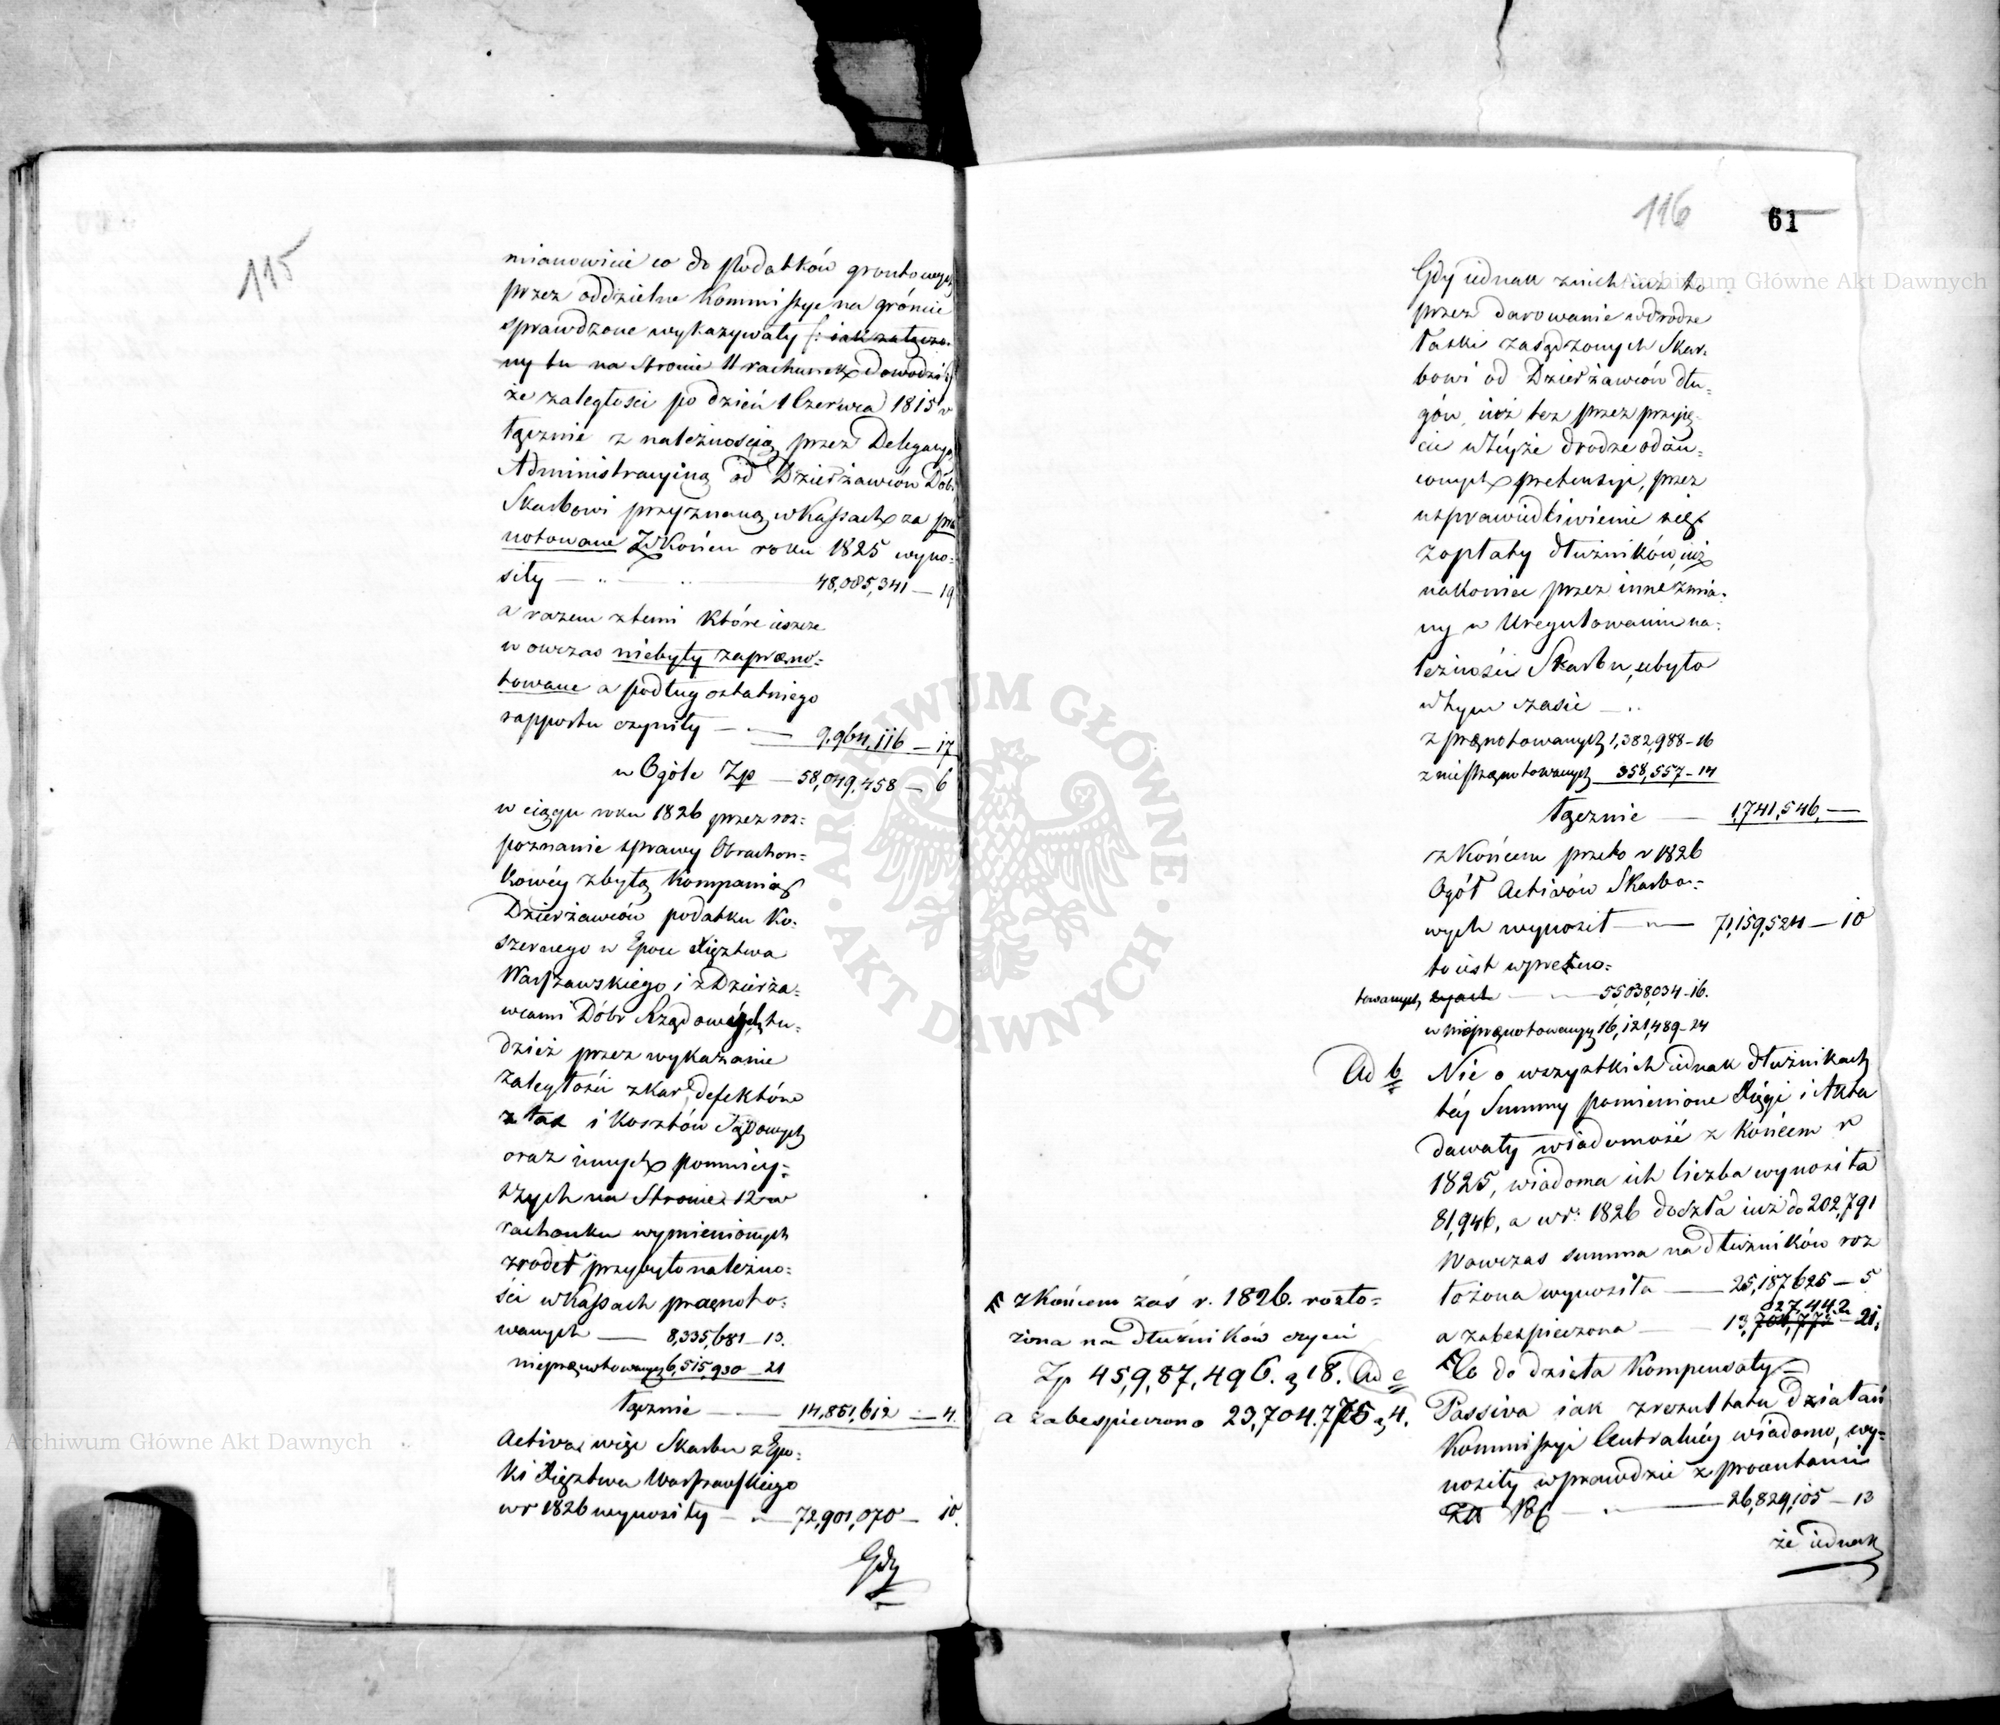 115
mianowicie co do podatków gruntowych
przez oddzielne Kommissye na gróncie
sprawdzone wykazywały (: iak załączo-
ny tu na stronie 11 rachunek dowodzi :)
że zaległości po dzień 1 Czerwca 1815 r
łącznie z należnością przez Delegacyą
Administracyiną od Dzierżawców Dóbr
Skarbowi przyznaną w Kassach za præ
notowane z Końcem roku 1825 wyno-
siły — 48,085,341 — 19
a razem z temi które ieszcze
wowczas niebyły zapræno-
towane a podług ostatniego
rapportu czyniły — 9,964,116 — 17
w Ogóle Zp — 58,049,458 — 6
w ciągu roku 1826 przez roz-
poznanie sprawy Obrachon-
kowéy z byłą Kompanią
Dzierżawców podatku Ko-
szernego w Epoce Xięztwa
Warszawskiego i z Dzierża-
wcami Dóbr Rządowych, tu-
dzież przez wykazanie
zaległości z kar, defektów
z tax i Kosztów Sądowych
oraz innych pomniey-
szych na Stronie 12 w
rachunku wymienionych
zrodeł przybyło należno-
ści w Kassach prænoto-
wanych — 8,335,681 — 13.
nieprænotowanych 6,515,930 — 21
łącznie — 14,851,612 — 4.
Activa więc Skarbu z Epo-
ki Xięztwa Warszawskiego
w r 1826 wynosiły — 72,901,070 — 10.
Gdy
116
61
Gdy iednak z nich iuż to
przez darowanie w drodze
łaski zasądzonych Skar-
bowi od Dzierżawców dłu-
gów, iuż tez przez przyię-
cie w téyże drodze odżu-
conych pretensyi, przez
usprawiedliwienie się
z opłaty dłużników, iuż
nakoniec przez inne zmia-
ny w Uregulowaniu na-
leżności Skarbu, ubyło
w tym czasie —
z prænotowanych 1,382,988 — 16
z nieprænotowanych 358,557 — 14
łącznie — 1,741,546, —
z Końcem przeto r 1826
Ogół Activów Skarbo-
wych wynosił — 71,159,524 — 10
to iest w præno-
towanych — 55,038,034 — 16.
w nieprænotowanych 16,121,489 — 24
Ad b Nie o wszystkich iednak dłużnikach
téy Summy pomienione Xięgi i Akta
dawały wiadomość z Końcem r
1825, wiadoma ich liczba wynosiła
81,946, a w r: 1826 doszła iuż do 202,791
Wowczas summa na dłużników roz
łożona wynosiła — 25,187,625 — 5
027,442
a zabezpieczona — 13,704,775 — 21.
z Końcem zaś r. 1826. rozło-
żona na dłużników czyni
Zp 45,987,496. g 18.
a zabezpieczono 23,704,775 g 4.
Ad c
Co do dzieła Kompensaty
Passiva iak z rezultatu działań
Kommissyi Centralnéy wiadomo, wy-
nosiły wprawdzie z procentami
— 26,829,105 — 13
że iednak
Archiwum Główne Akt Dawnych
Archiwum Główne Akt Dawnych
ARCHIWUM GŁÓWNE · AKT DAWNYCH ·